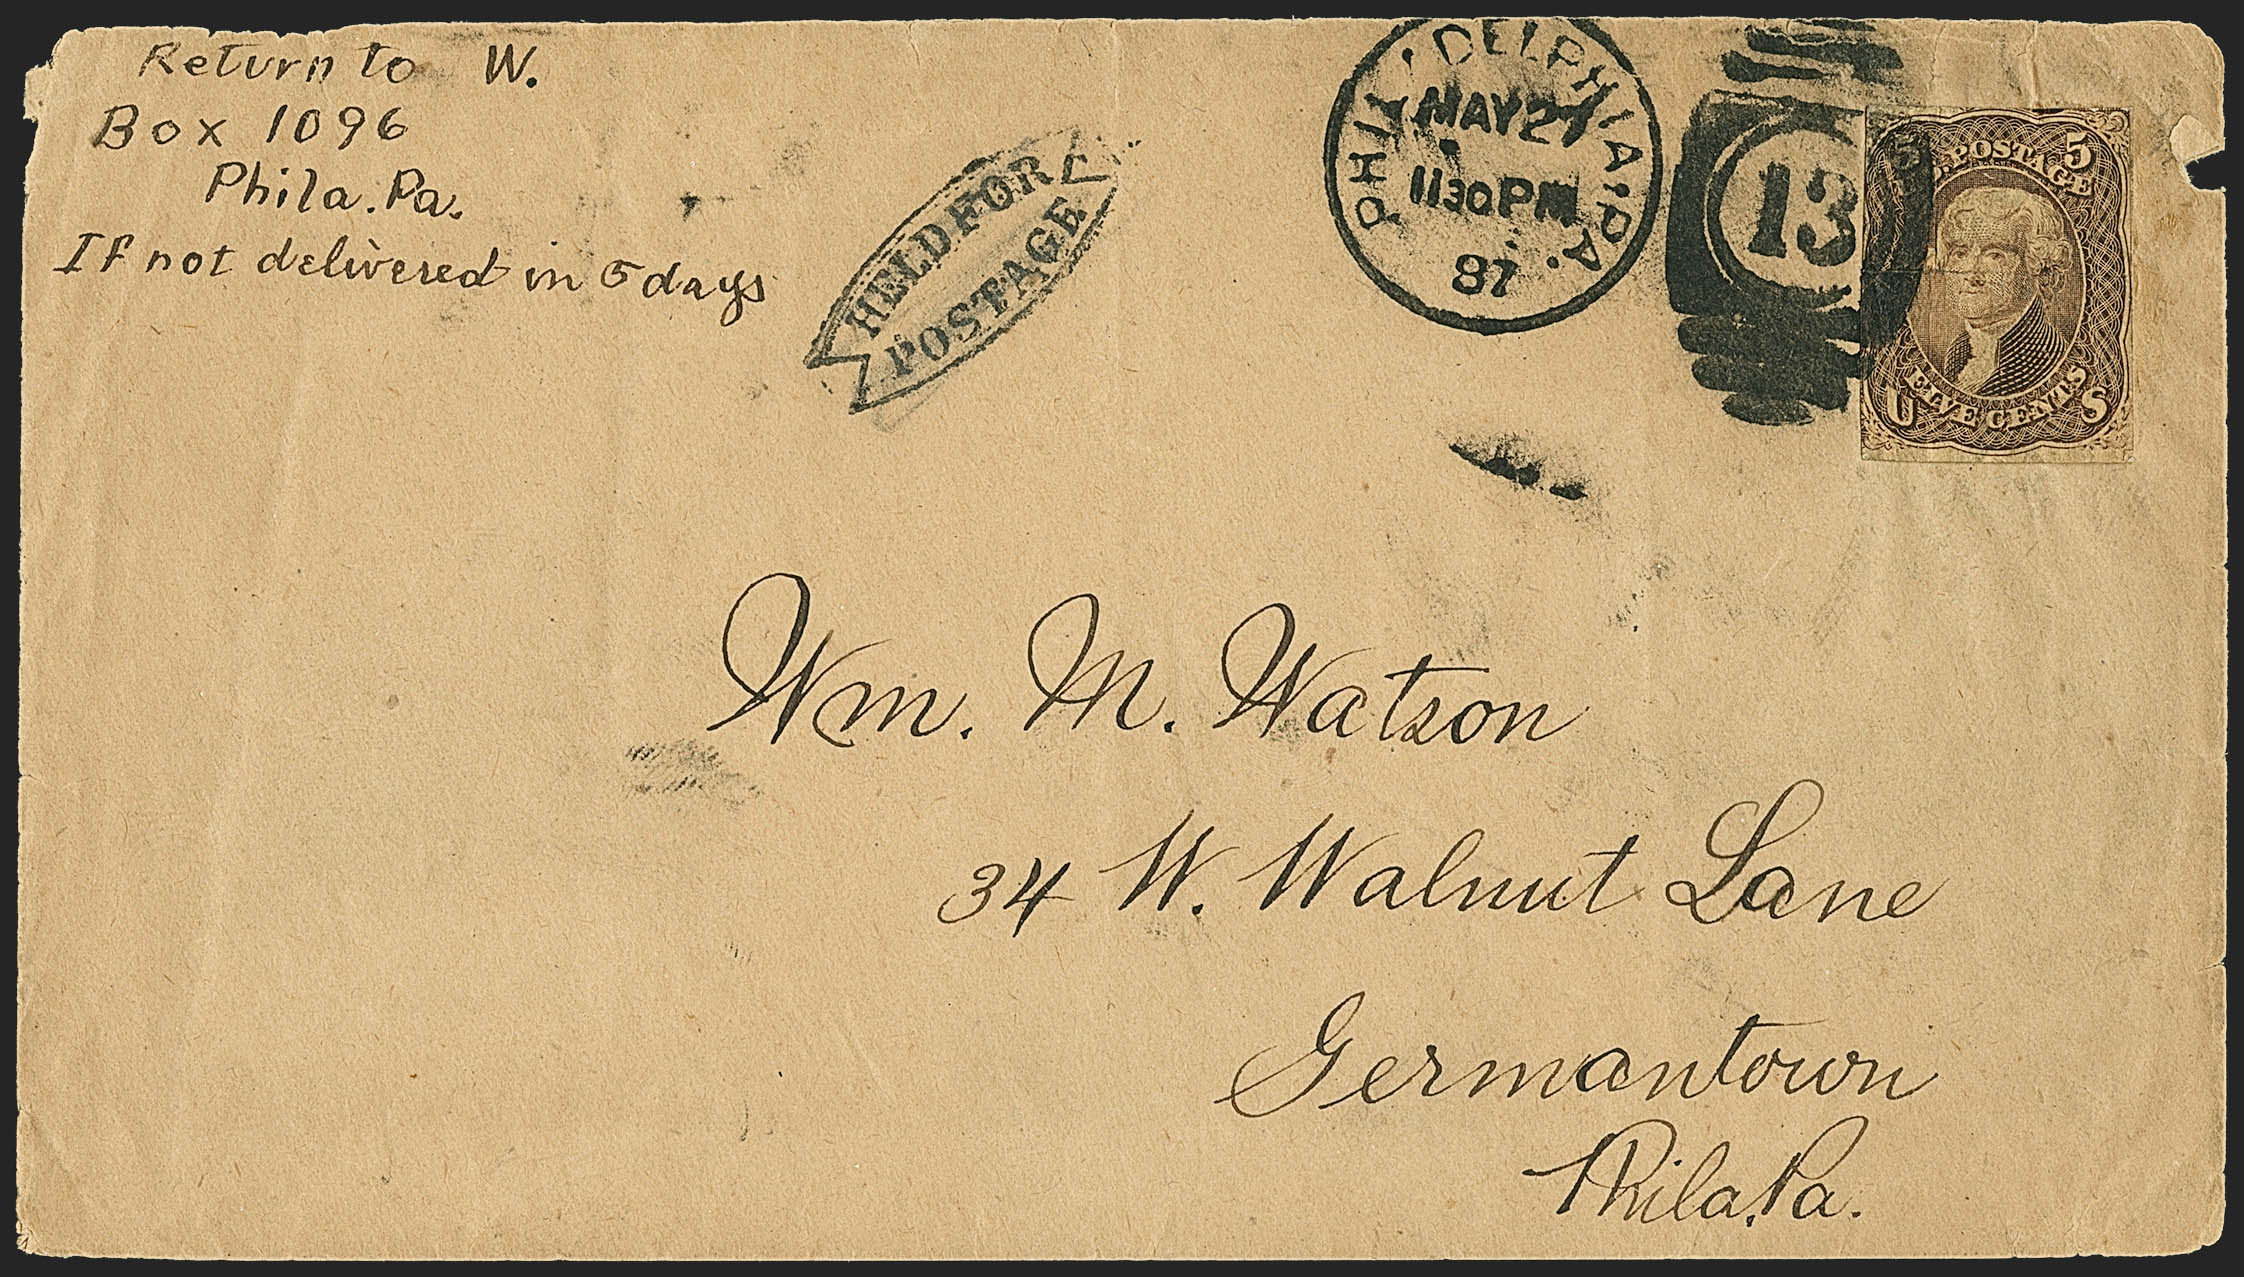 Return to W.
Box 1096
Phila. Pa.
If not delivered in 5 days
HELD FOR
POSTAGE
PHILADELPHIA, PA.
MAY 27
1130 PM
87
13
5 U.S. POSTAGE 5
FIVE CENTS
U S
Wm. M. Watson
34 W. Walnut Lane
Germantown
Phila. Pa.